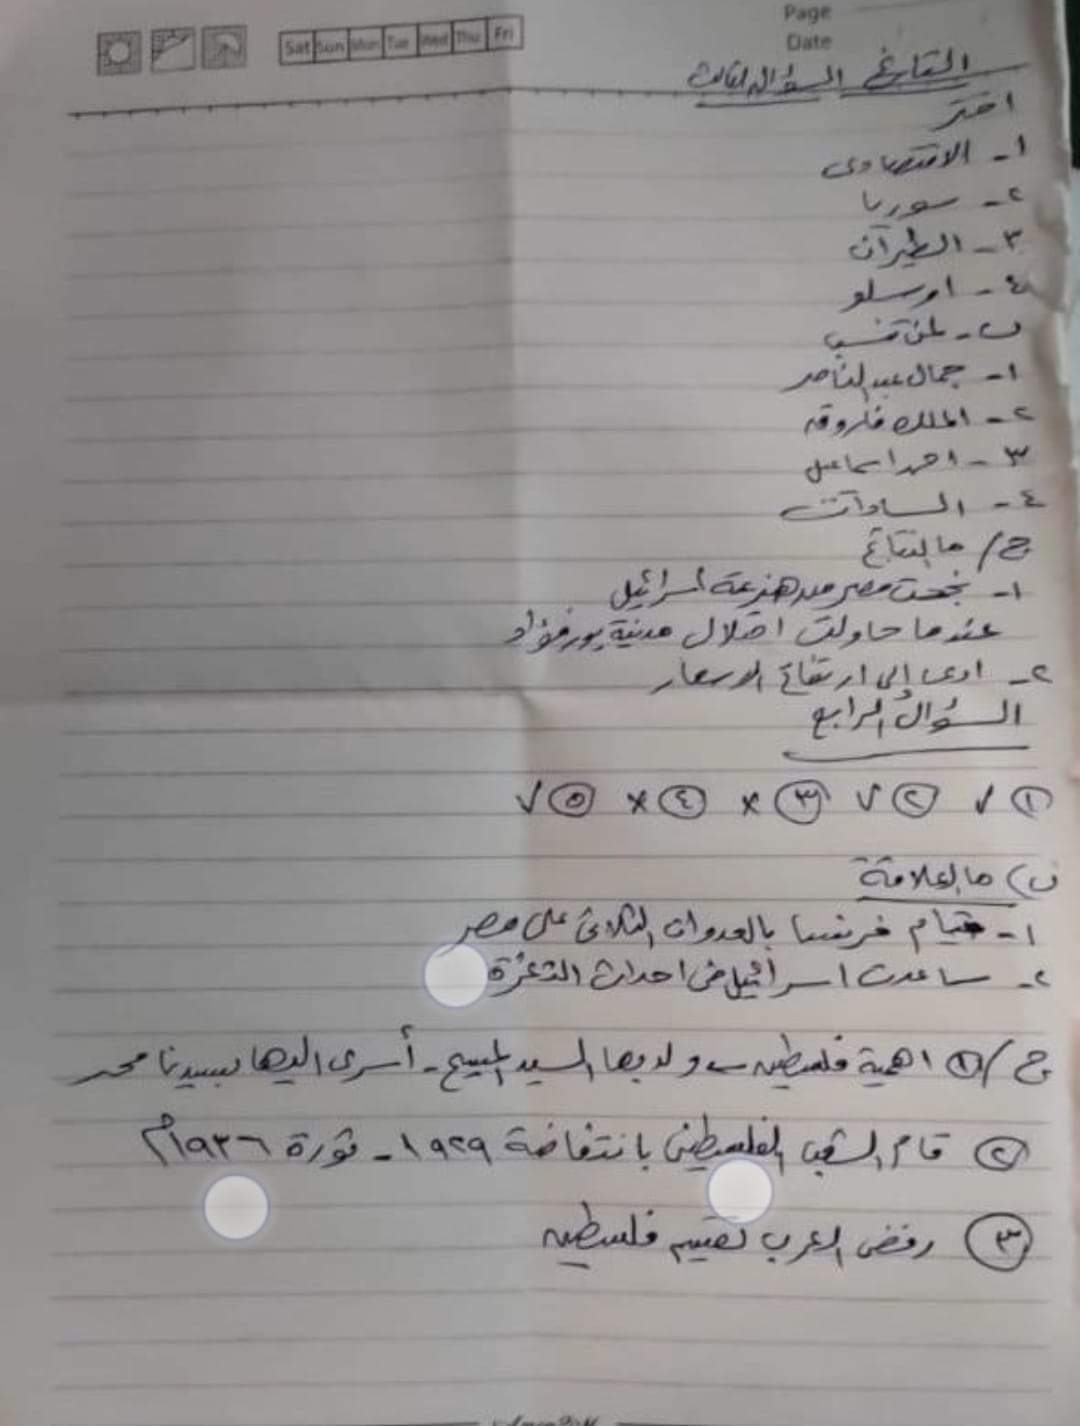 Page
Date
Sat Sun Mon Tue Wed Thu Fri
التاريخ السؤال الثالث
اختر
١- الاقتصادى
٢- سوريا
٣- الطيران
٤- اوسلو
ب- لمن تنسب
١- جمال عبد الناصر
٢- الملك فاروق
٣- احمد اسماعيل
٤- السادات
ج/ ما النتائج
١- نجحت مصر من هزيمة اسرائيل
عندما حاولت احتلال مدينة بورفؤاد
٢- ادى إلى ارتفاع الاسعار
السؤال الرابع
١ ✓ ٢ ✓ ٣ × ٤ × ٥ ✓
ب) ما العلاقة
١- قيام فرنسا بالعدوان الثلاثى على مصر
٢- ساعدت اسرائيل فى احداث
ج/ ١ اهمية فلسطين ولد بها السيد المسيح - أسرى اليها سيدنا محمد
٢ قام الشعب الفلسطينى بانتفاضة ١٩٢٩ - ثورة ١٩٣٦م
٣ رفض العرب تقسيم فلسطين